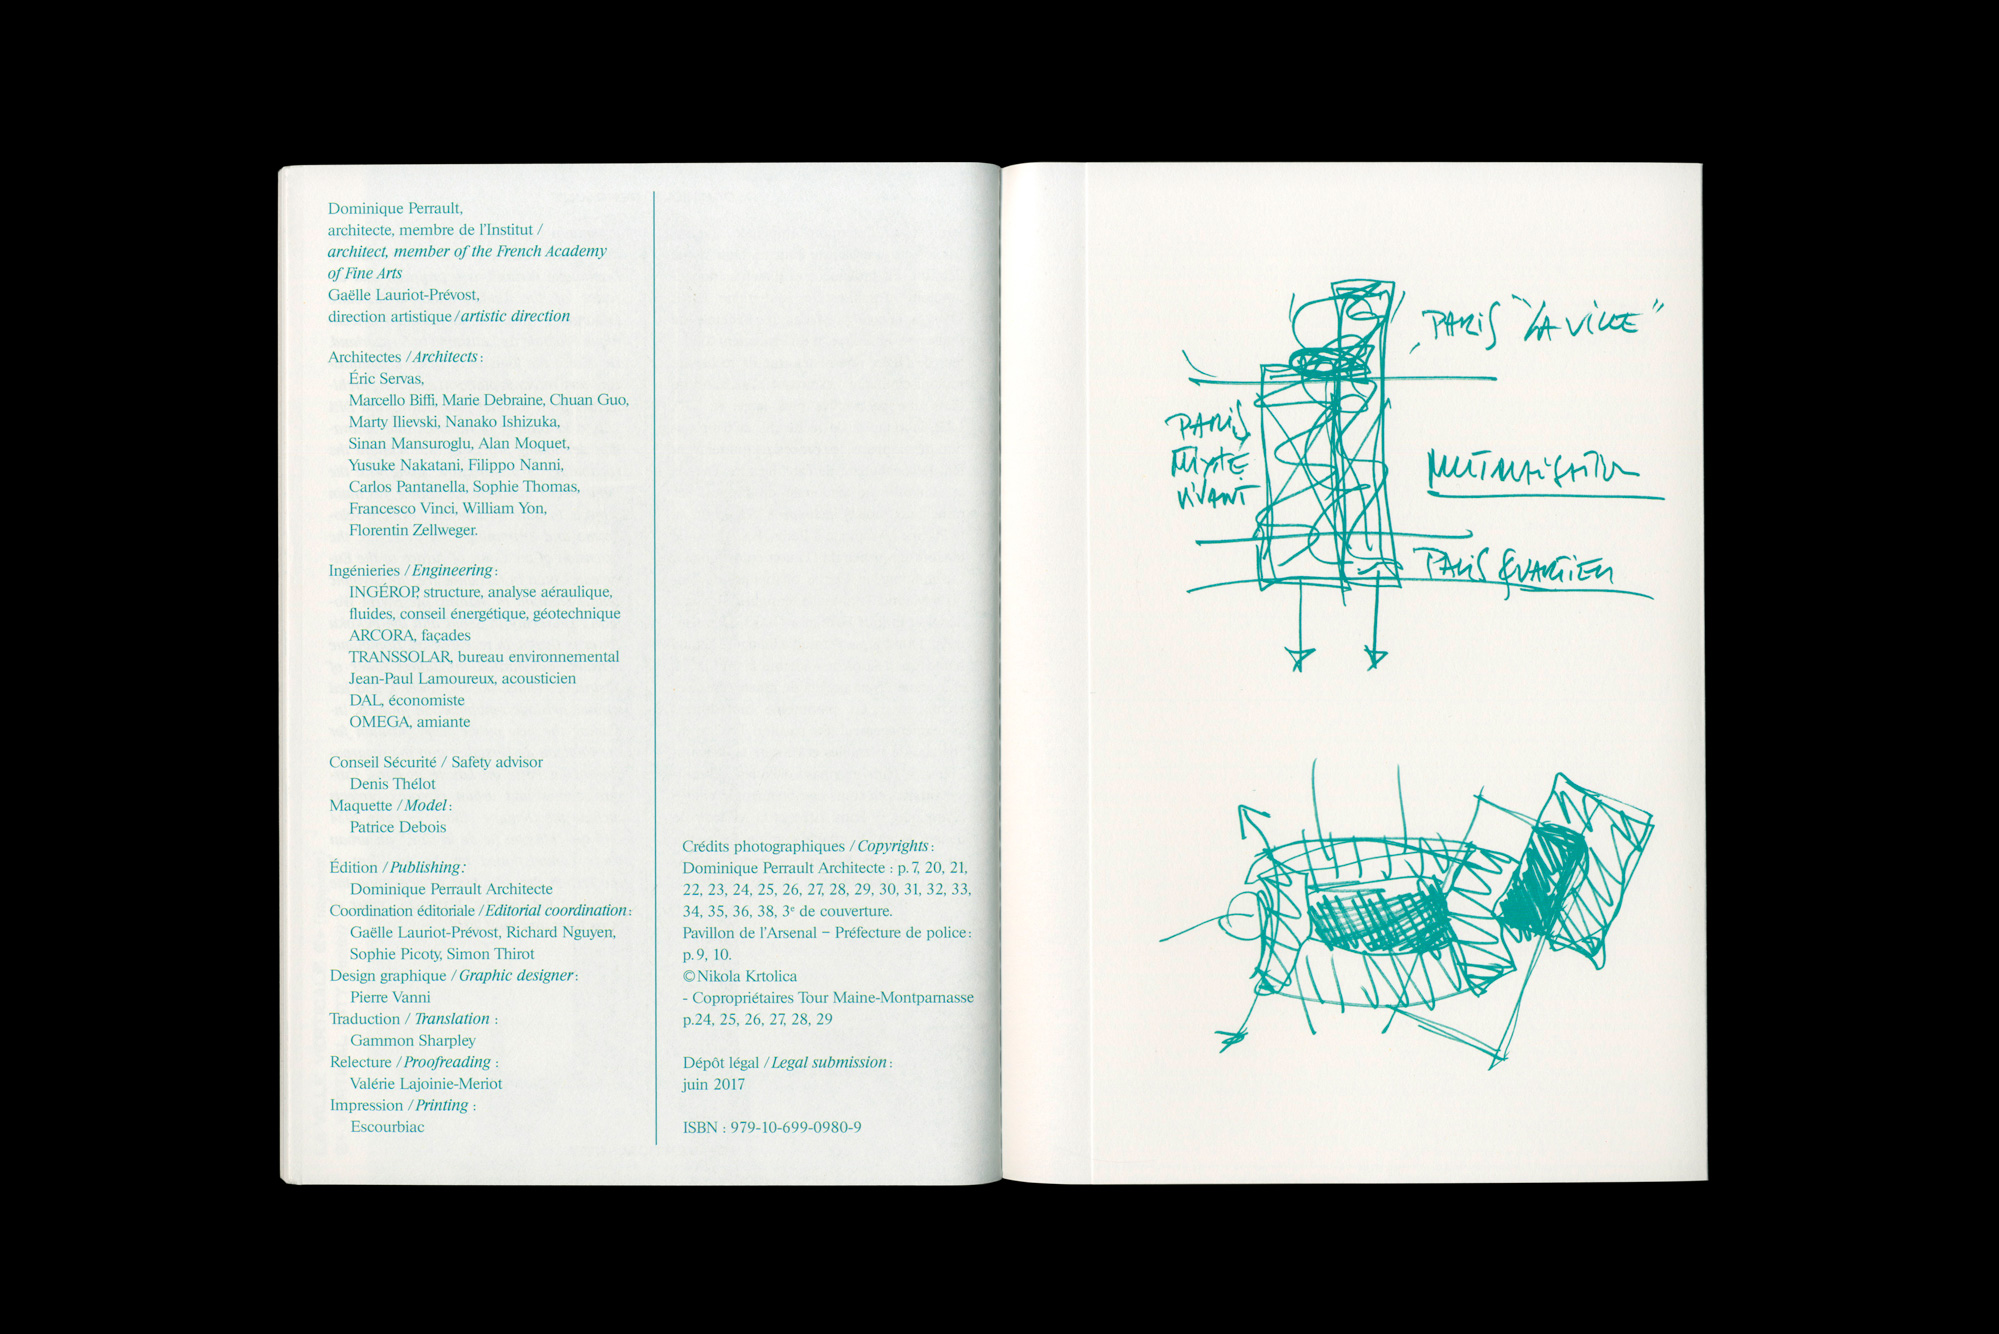 Dominique Perrault,
architecte, membre de l'Institut /
architect, member of the French Academy
of Fine Arts
Gaëlle Lauriot-Prévost,
direction artistique / artistic direction
Architectes / Architects :
Éric Servas,
Marcello Biffi, Marie Debraine, Chuan Guo,
Marty Ilievski, Nanako Ishizuka,
Sinan Mansuroglu, Alan Moquet,
Yusuke Nakatani, Filippo Nanni,
Carlos Pantanella, Sophie Thomas,
Francesco Vinci, William Yon,
Florentin Zellweger.
Ingénieries / Engineering :
INGÉROP, structure, analyse aéraulique,
fluides, conseil énergétique, géotechnique
ARCORA, façades
TRANSSOLAR, bureau environnemental
Jean-Paul Lamoureux, acousticien
DAL, économiste
OMEGA, amiante
Conseil Sécurité / Safety advisor
Denis Thélot
Maquette / Model :
Patrice Debois
Édition / Publishing :
Dominique Perrault Architecte
Coordination éditoriale / Editorial coordination :
Gaëlle Lauriot-Prévost, Richard Nguyen,
Sophie Picoty, Simon Thirot
Design graphique / Graphic designer :
Pierre Vanni
Traduction / Translation :
Gammon Sharpley
Relecture / Proofreading :
Valérie Lajoinie-Meriot
Impression / Printing :
Escourbiac
Crédits photographiques / Copyrights :
Dominique Perrault Architecte : p. 7, 20, 21,
22, 23, 24, 25, 26, 27, 28, 29, 30, 31, 32, 33,
34, 35, 36, 38, 3e de couverture.
Pavillon de l'Arsenal – Préfecture de police :
p. 9, 10.
© Nikola Krtolica
- Copropriétaires Tour Maine-Montparnasse
p.24, 25, 26, 27, 28, 29
Dépôt légal / Legal submission :
juin 2017
ISBN : 979-10-699-0980-9
PARIS "LA VILLE"
PARIS
MIXTE
VIVANT
MUTUALISATION
PARIS QUARTIER